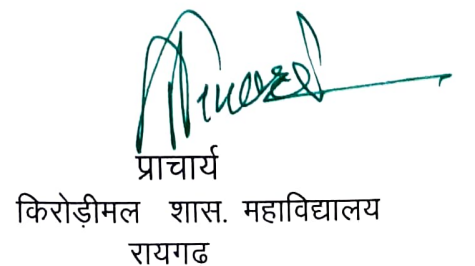 प्राचार्य
किरोड़ीमल शास. महाविद्यालय
रायगढ